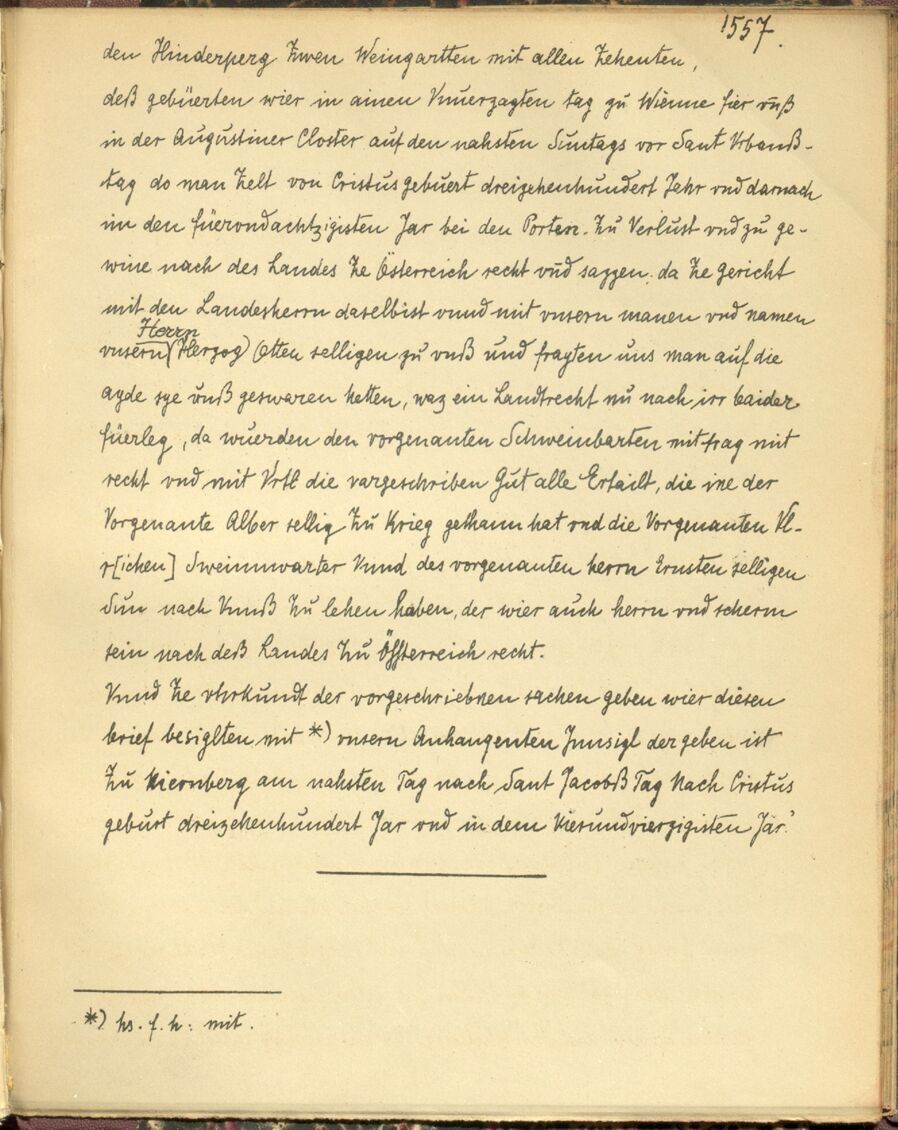 1557.
den Hinderperg Zwen Weingartten mit allen Zehenten,
deß gebüerten wier in ainen Vnuerzagten tag zu Wienne fier vnß
in der Augustiner Closter auf den nahsten Suntags vor Sant Vrbanß-
tag do man Zelt von Cristus gebuert dreizehenhundert Jahr vnd darnach
im den füerondachtzigisten Jar bei den Porten. Zu Verlust vnd zu ge-
wine nach des Landes Ze Österreich recht vnd saggen. da Ze gericht
mit den Landesherrn daselbist vnnd mit vnsern manen vnd namen
Herrn
vnsern (Herzog) Otten selligen zu vnß und fragten uns man auf die
ayde sye vnß geswaren hetten, waz ein Landtrecht nu nach irr baider
füerleg, da wuerden den vorgenanten Schweinbarten mit frag mit
recht vnd mit Vrtl die vargeschriben Gut alle Ertailt, die ine der
Vorgenante Alber sellig Zu Krieg gethann hat vnd die Vorgenanten Vl-
r[ichen] Sweinnwarter Vnnd des vorgenanten herrn Ernsten selligen
Sun nach Vnnß Zu lehen haben, der wier auch herrn vnd scherm
sein nach deß Landes Zu Öfsterreich recht.
Vnnd Ze vhrkundt der vorgeschriebnen sachen geben wier diesen
brief besiglten mit *) vnsern Anhangenten Jnnsigl der geben ist
Zu Niernberg am nahsten Tag nach Sant Jacobß Tag Nach Cristus
geburt dreizehenhundert Jar vnd in dem Vierundvierzigisten Jar.
*) hs. f. h: mit.